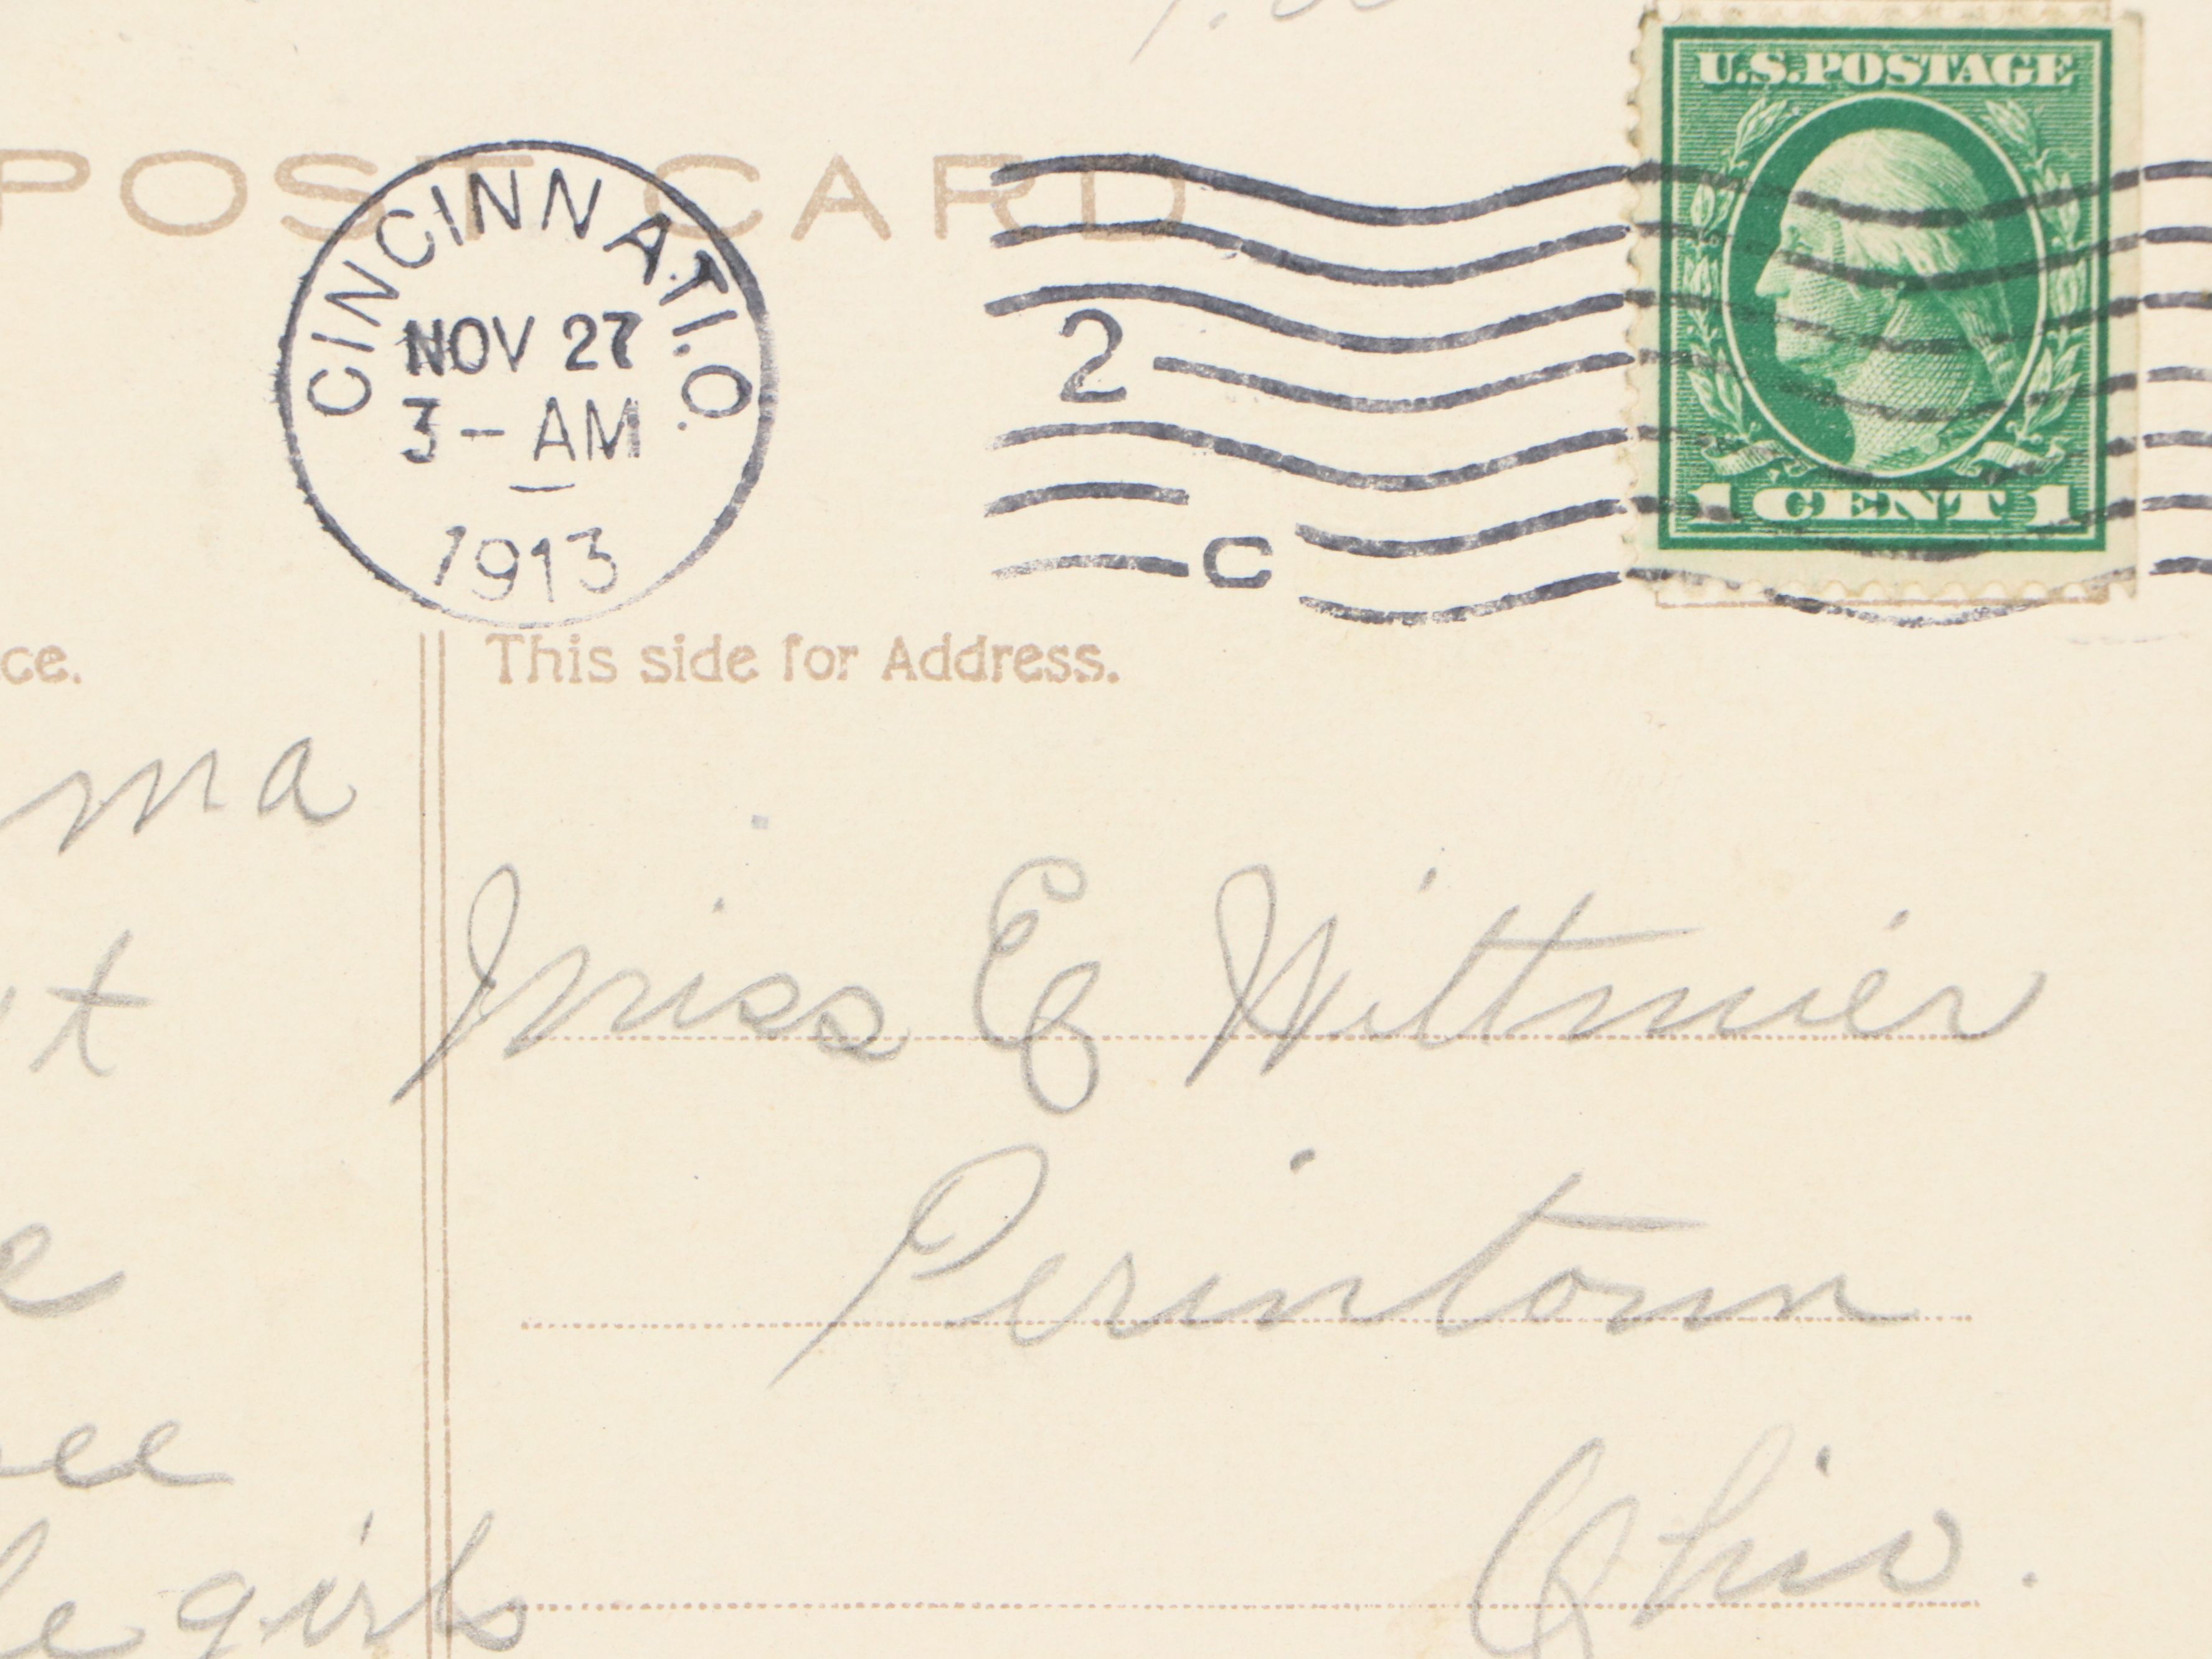 U.S.POSTAGE
POST CARD
CINCINNATI.O.
NOV 27
3-AM
1913
2
C
1 CENT 1
This side for Address.
Miss E Wittmier
Perintown
Ohio.
ce.
ma
t
e
ee
le girls